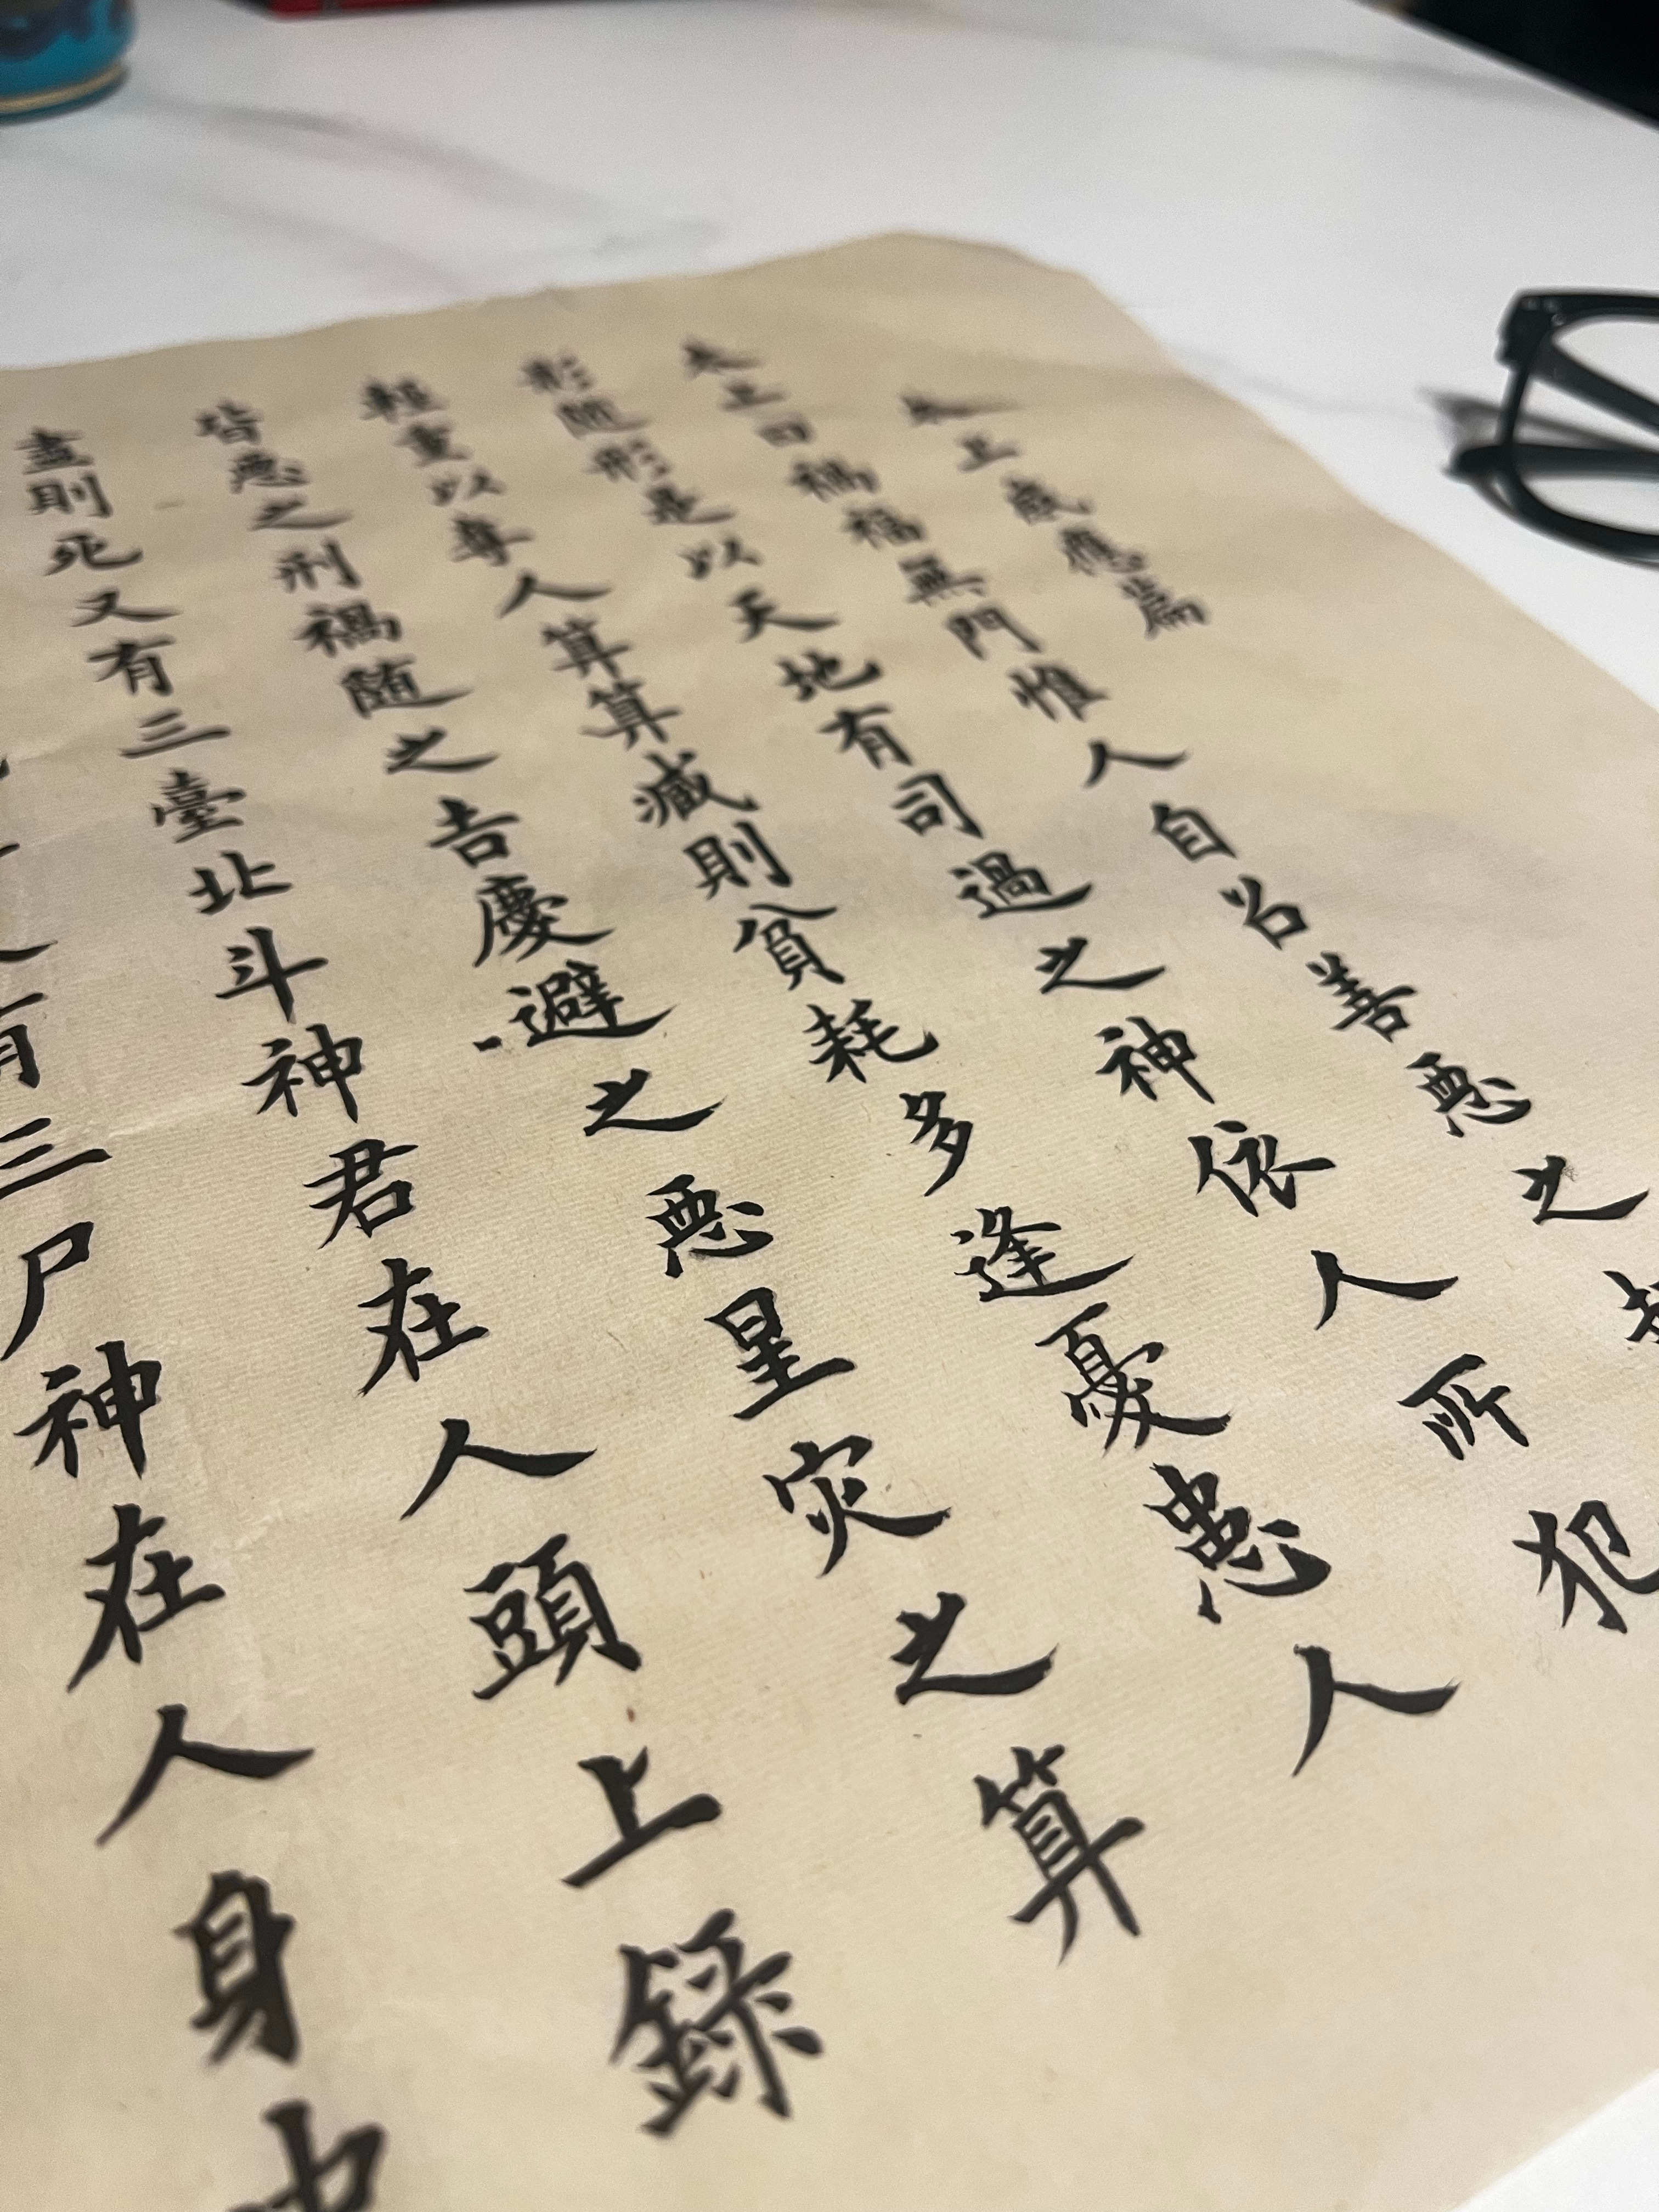 太上感應篇
太上曰禍福無門惟人自召善惡之
影隨形是以天地有司過之神依人所犯
輕重以奪人算算減則貧耗多逢憂患人
皆惡之刑禍隨之吉慶避之惡星灾之算
盡則死又有三臺北斗神君在人頭上錄
有三尸神在人身中